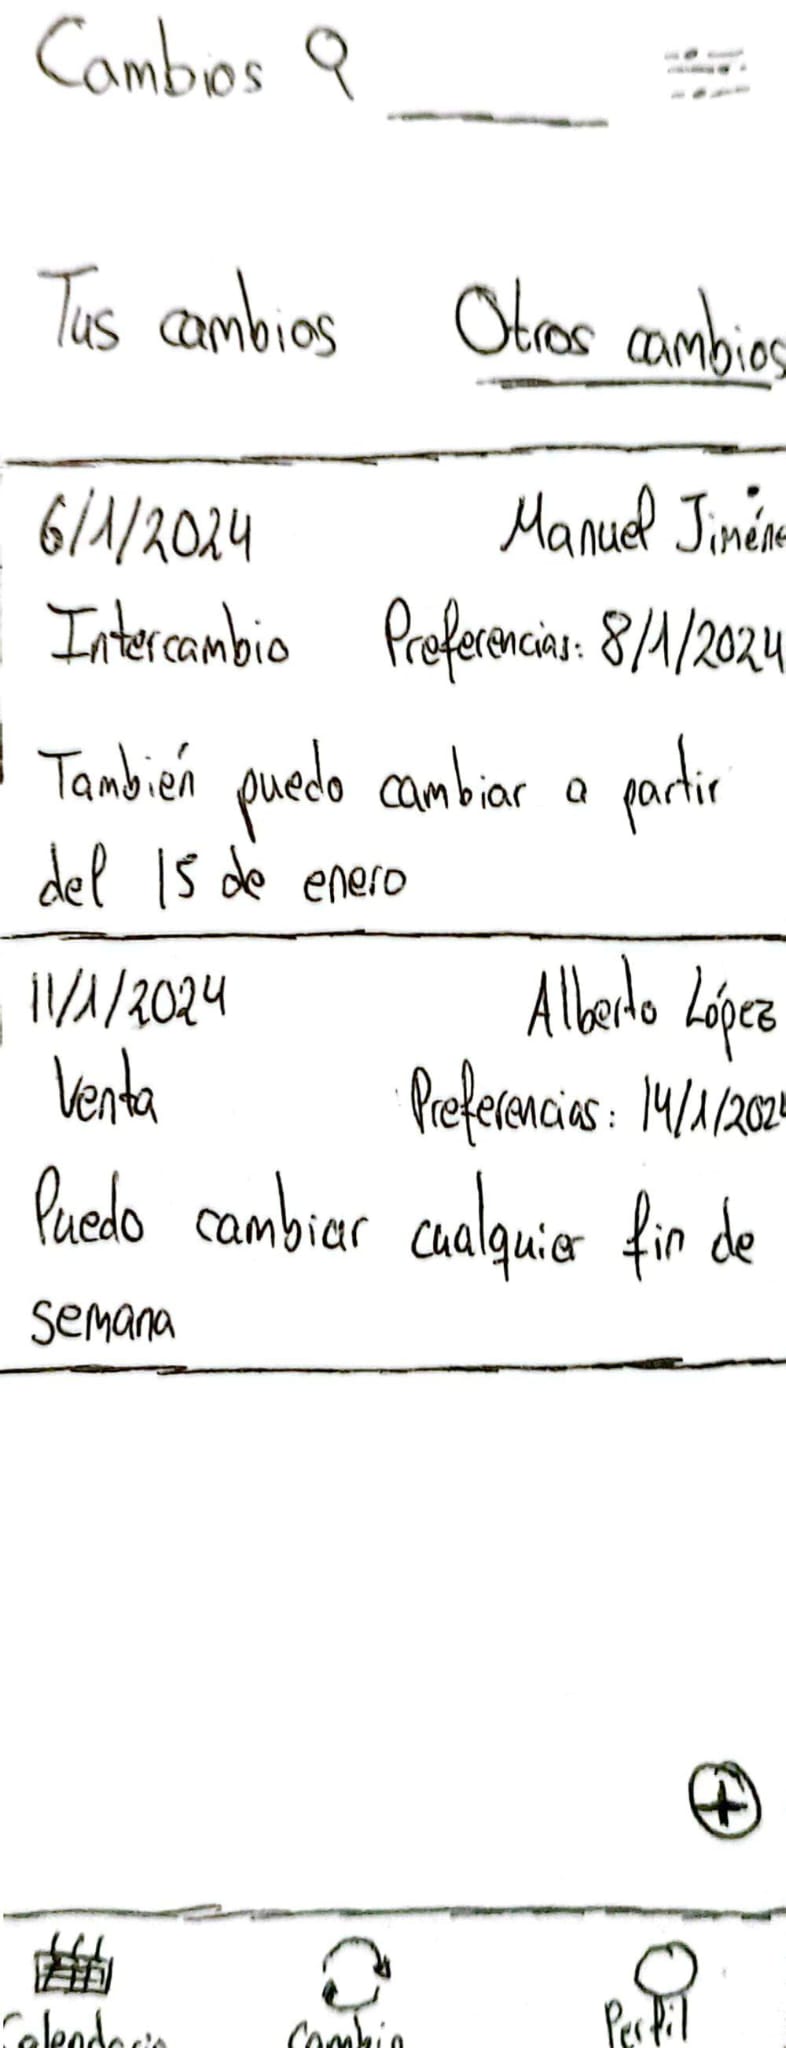 Cambios
Tus cambios Otros cambios
6/1/2024 Manuel Jiméne
Intercambio Preferencias: 8/1/2024
También puedo cambiar a partir
del 15 de enero
11/1/2024 Alberto López
Venta Preferencias: 14/1/202
Puedo cambiar cualquier fin de
semana
Calendario Cambio Perfil